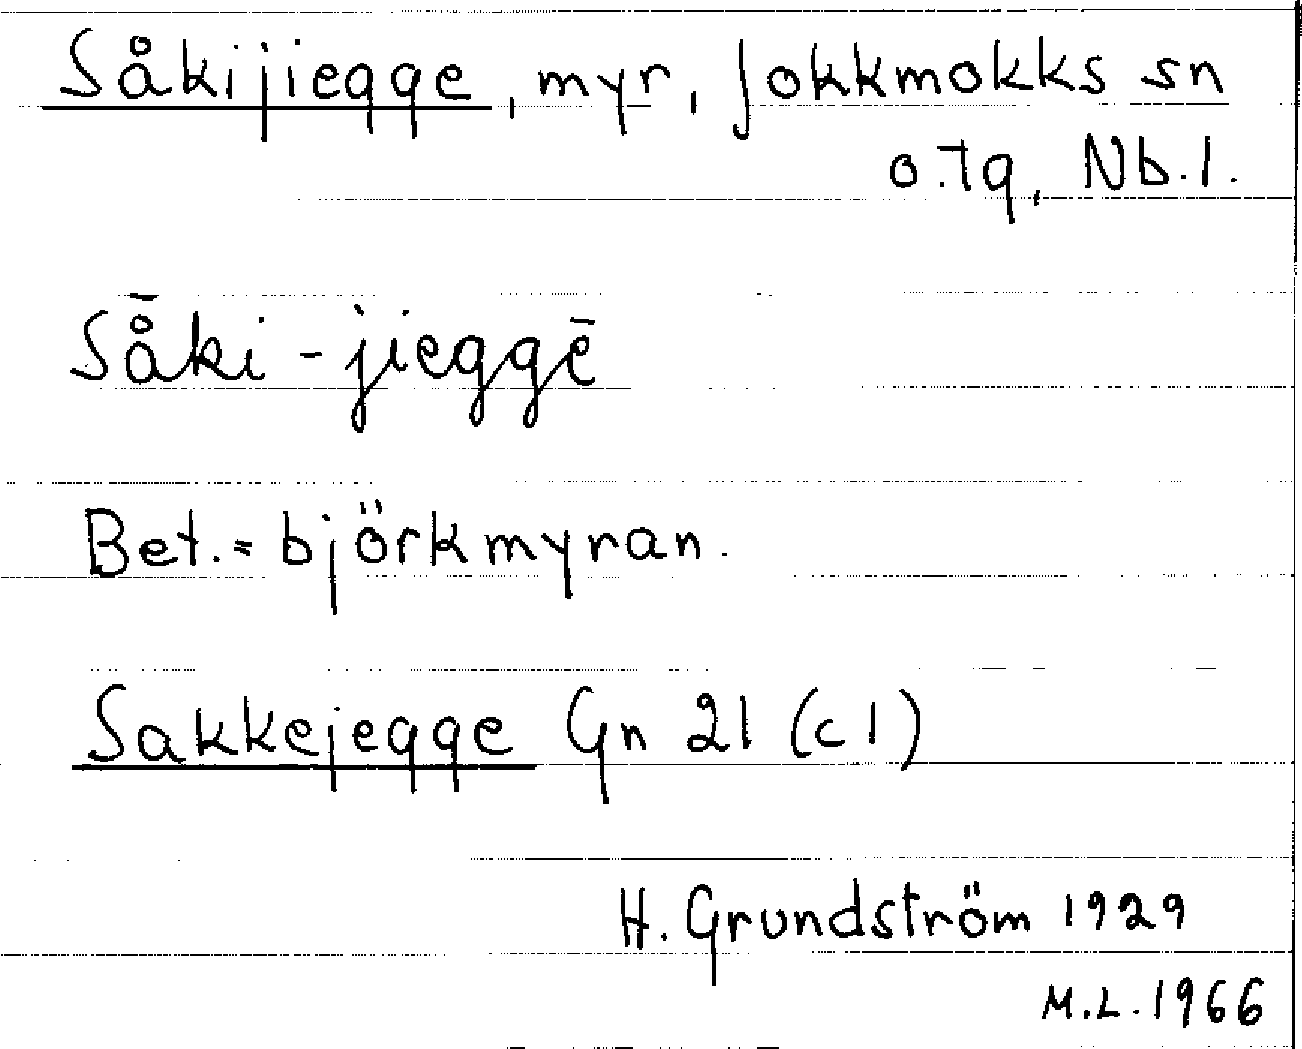 Såkijiegge, myr, Jokkmokks sn
o. lg, Nb. l.
Så̄ki - jieggē
Bet. = björkmyran.
Sakkejegge Gn 21 (c1)
H. Grundström 1929
M.L. 1966